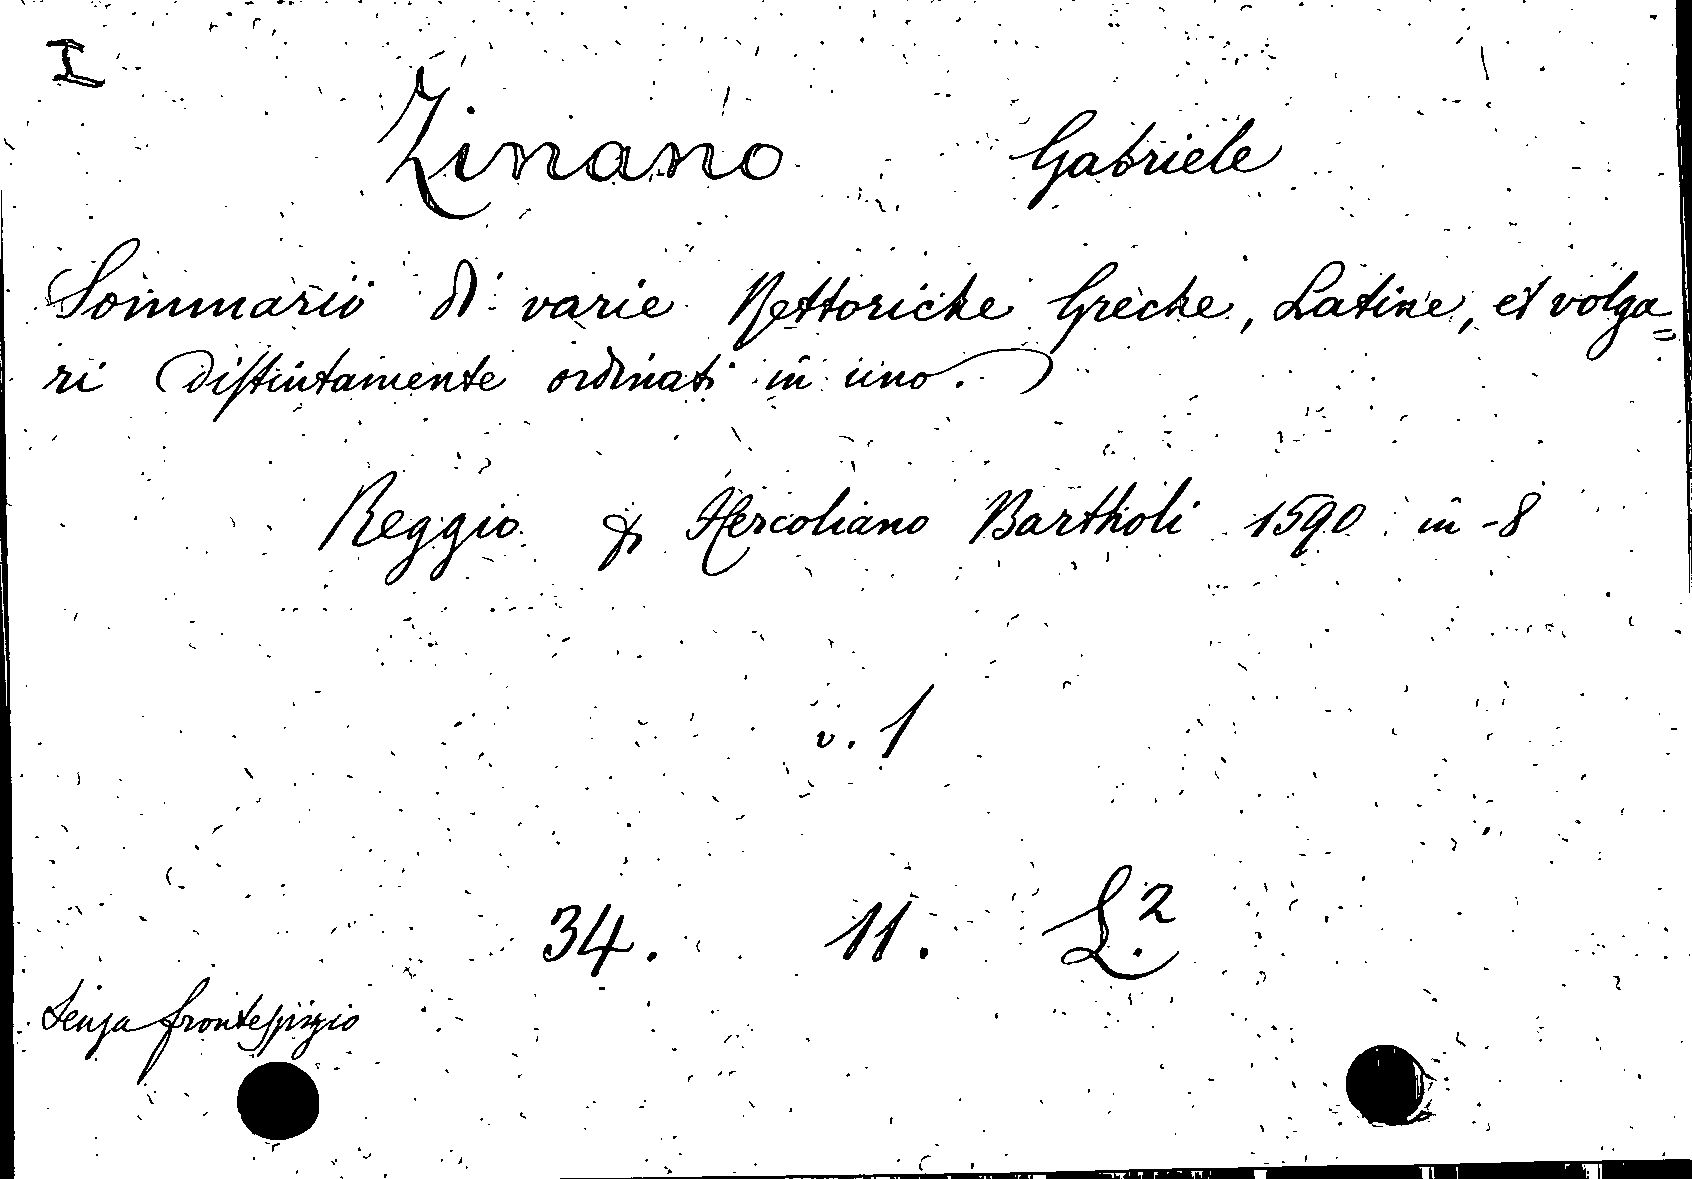 I
Zinano Gabriele
Sommario di varie Rettoriche Greche, Latine, et volga=
ri distintamente ordinati in uno.
Reggio p Hercoliano Bartholi 1590 in -8
v. 1
34. 11. L.2
Senza frontespizio